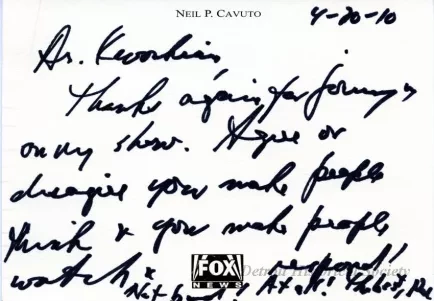 NEIL P. CAVUTO
4-20-10
Dr. Kevorkian
Thanks again for joining
on my show. Agree or
disagree you make people
think & you make people
watch & respond!
Not bad! At all!
FOX
NEWS
Detroit Historical Society